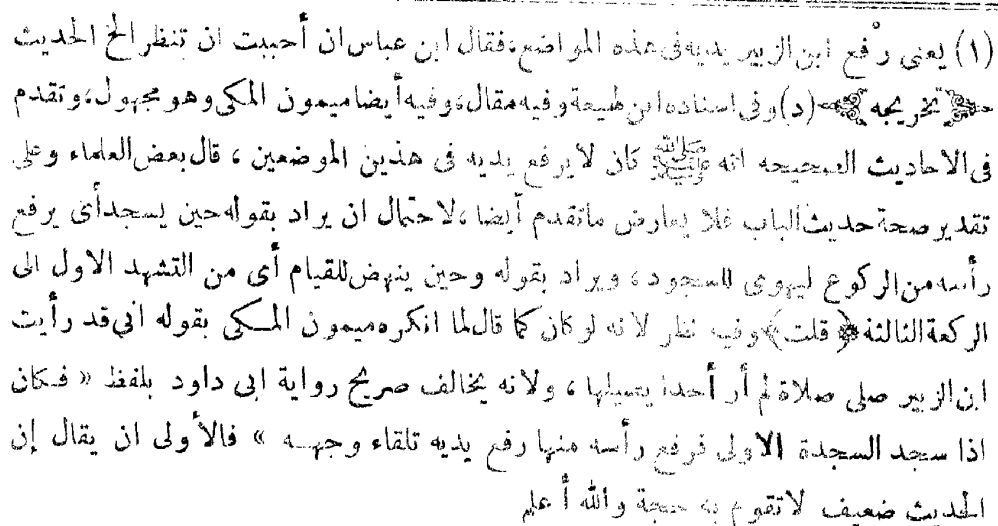 (١) يعنى رفع ابن الزبير يديه فى هذه المواضع، فقال ابن عباس ان أحببت ان تنظر الخ الحديث
تخريجه (د) وفى اسناده ابن لهيعة وفيه مقال، وفيه أيضا ميمون المكى وهو مجهول، وتقدم
فى الاحاديث الصحيحه انه ﷺ كان لا يرفع يديه فى هذين الموضعين ، قال بعض العلماء وعلى
تقدير صحة حديث الباب فلا يعارض ماتقدم أيضا ، لاحتمال ان يراد بقوله حين يسجد أى يرفع
رأسه من الركوع ليهوى للسجود ، ويراد بقوله وحين ينهض للقيام أى من التشهد الاول الى
الركعة الثالثة ﴿ قلت ﴾ وفيه نظر لانه لو كان كما قال لما انكره ميمون المكى بقوله انى قد رأيت
ابن الزبير صلى صلاة لم أر أحدا يصليها ، ولانه يخالف صريح رواية ابى داود بلفظ « فكان
اذا سجد السجدة الاولى فرفع رأسه منها رفع يديه تلقاء وجهه » فالأولى ان يقال إن
الحديث ضعيف لاتقوم به حجة والله أعلم